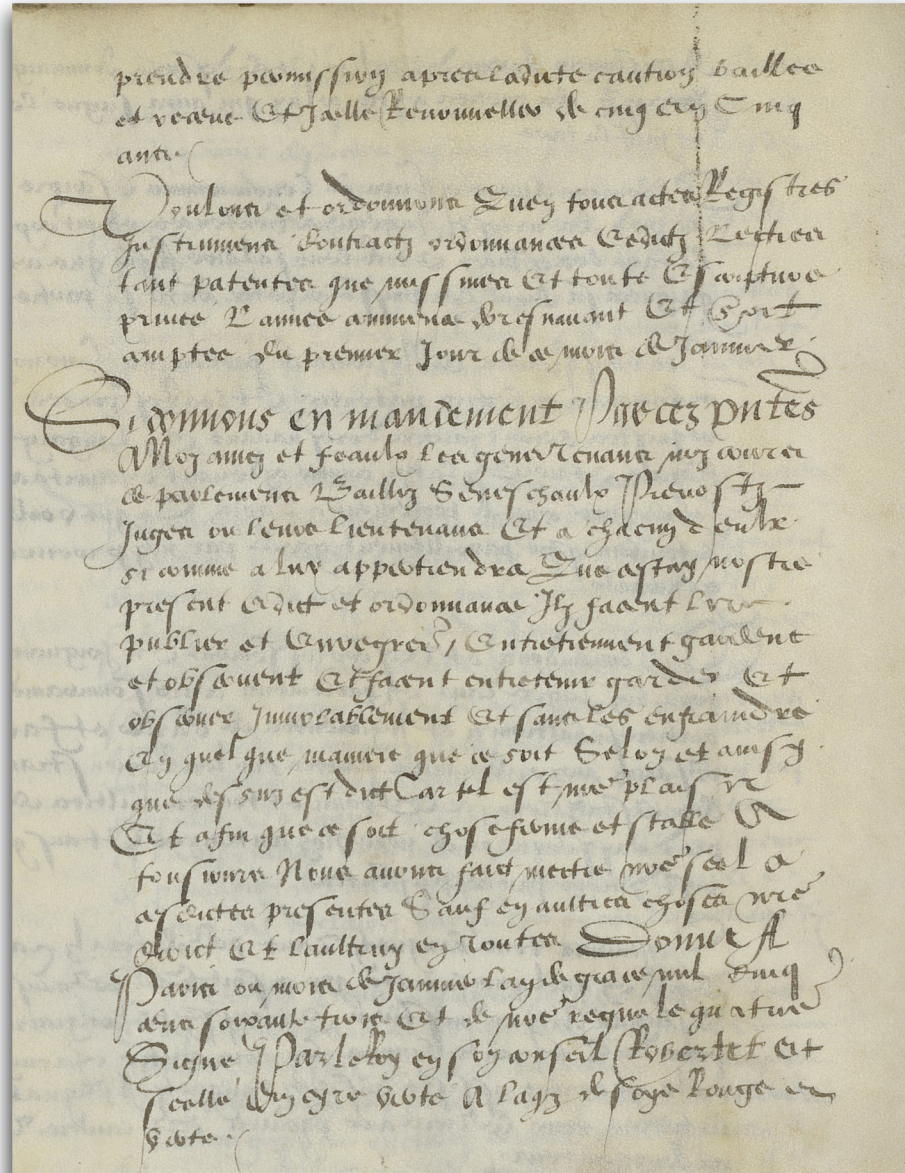 prendre permission apres ladicte caution baillee
et receue Et Icelle Renouveller de cinq en Cinq
ans
Voulons et ordonnons Quen tous actes Registres
Instrumens Contractz ordonnances Edictz Lectres
tant patentes que missives Et toute Escripture
privee Lannee commence doresnavant Et soit
comptee du premier Jour de ce mois de Janvier
Si donnons en mandement Par ces pntes
A Noz amez et feaulx les gens tenans noz cours
de parlemens Bailliz Seneschaulx Prevostz
Juges ou leurs lieutenans Et a chacun d eulx
si comme a luy appartiendra Que cestuy nostre
present edict et ordonnance Ilz facent lire
publier et Enregrer, Entretiennent gardent
et observent Et facent entretenir garder Et
observer Inviolablement Et sans les enfraindre
En quelque maniere que ce soit Selon et ainsi
que dessus est dict Car tel est nre plaisir
Et afin que ce soit chose ferme et stable A
tousiours Nous avons faict mectre nre seel a
cesdictes presentes Sauf en aultres choses nre
droict Et laultruy en toutes Donne A
Paris ou mois de Janvier lan de grace mil cinq
cens soixante trois Et de nre regne le quatrie
Signe Par le Roy en son conseil Robertet Et
seelle en cyre verte A laqz de soye Rouge et
verte